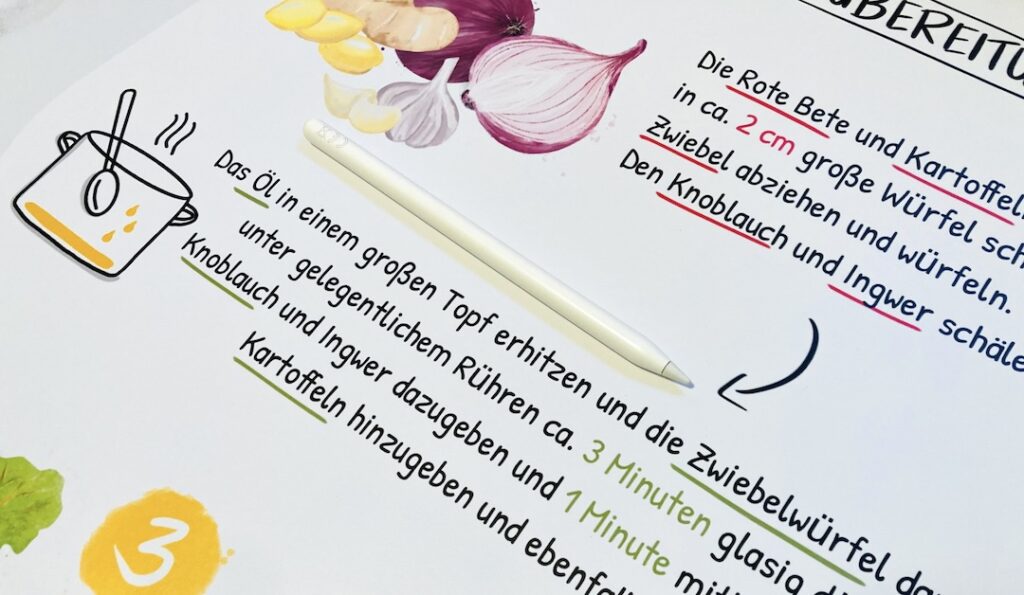 UBEREITU
Die Rote Bete und Kartoffeln
in ca. 2 cm große Würfel sch
Zwiebel abziehen und würfeln.
Den Knoblauch und Ingwer schäle
Das Öl in einem großen Topf erhitzen und die Zwiebelwürfel da
unter gelegentlichem Rühren ca. 3 Minuten glasig d
Knoblauch und Ingwer dazugeben und 1 Minute mit
Kartoffeln hinzugeben und ebenfal
3